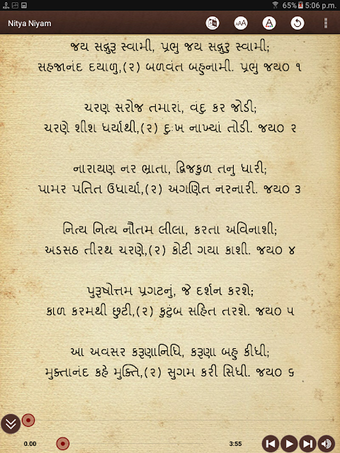 65% 5:06 p.m.
Nitya Niyam
જય સદ્ગુરુ સ્વામી, પ્રભુ જય સદ્ગુરુ સ્વામી;
સહજાનંદ દયાળુ,(૨) બળવંત બહુનામી. પ્રભુ જય૦ ૧
ચરણ સરોજ તમારાં, વંદુ કર જોડી;
ચરણે શીશ ધર્યાથી,(૨) દુઃખ નાખ્યાં તોડી. જય૦ ૨
નારાયણ નર ભ્રાતા, દ્વિજકુળ તનુ ધારી;
પામર પતિત ઉધાર્યા,(૨) અગણિત નરનારી. જય૦ ૩
નિત્ય નિત્ય નૌતમ લીલા, કરતા અવિનાશી;
અડસઠ તીરથ ચરણે,(૨) કોટી ગયા કાશી. જય૦ ૪
પુરૂષોત્તમ પ્રગટનું, જે દર્શન કરશે;
કાળ કરમથી છુટી,(૨) કુટુંબ સહિત તરશે. જય૦ ૫
આ અવસર કરૂણાનિધિ, કરૂણા બહુ કીધી;
મુક્તાનંદ કહે મુક્તિ,(૨) સુગમ કરી સિધી. જય૦ ૬
0.00 3:55